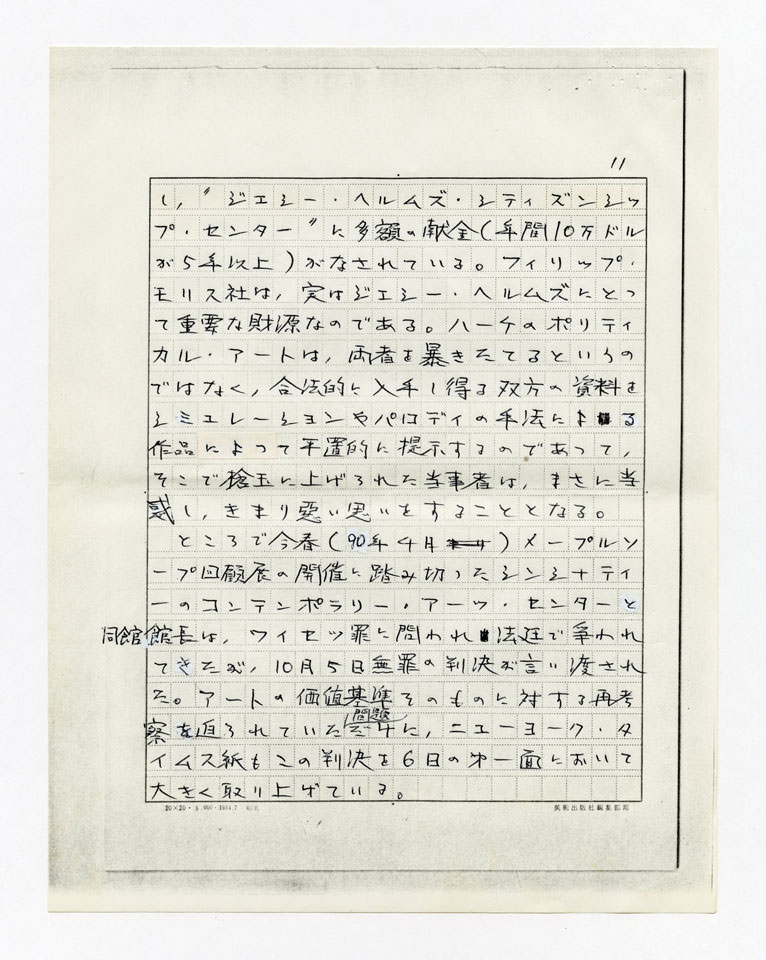 11
し,〃ジェシー・ヘルムズ・シティズンシッ
プ・センター〃に多額の献金(年間10万ドル
が5年以上)がなされている。フィリップ・
モリス社は,実はジェシー・ヘルムズにとっ
て重要な財源なのである。ハーケのポリティ
カル・アートは,両者を暴きたてるというの
ではなく,合法的に入手し得る双方の資料を
シミュレーションやパロディの手法による
作品によって平置的に提示するのであって,
そこで槍玉に上げられた当事者は,まさに当
惑し,きまり悪い思いをすることとなる。
ところで今春(90年4月)メープルソ
ープ回顧展の開催に踏み切ったシンシナティ
ーのコンテンポラリー・アーツ・センターと
同館館長は,ワイセツ罪に問われ法廷で争われ
てきたが,10月5日無罪の判決が言い渡され
た。アートの価値基準そのものに対する再考
察を迫られていた問題だけに,ニューヨーク・タ
イムス紙もこの判決を6日の第一面において
大きく取り上げている。
20×20・ 1984.7
美術出版社編集部